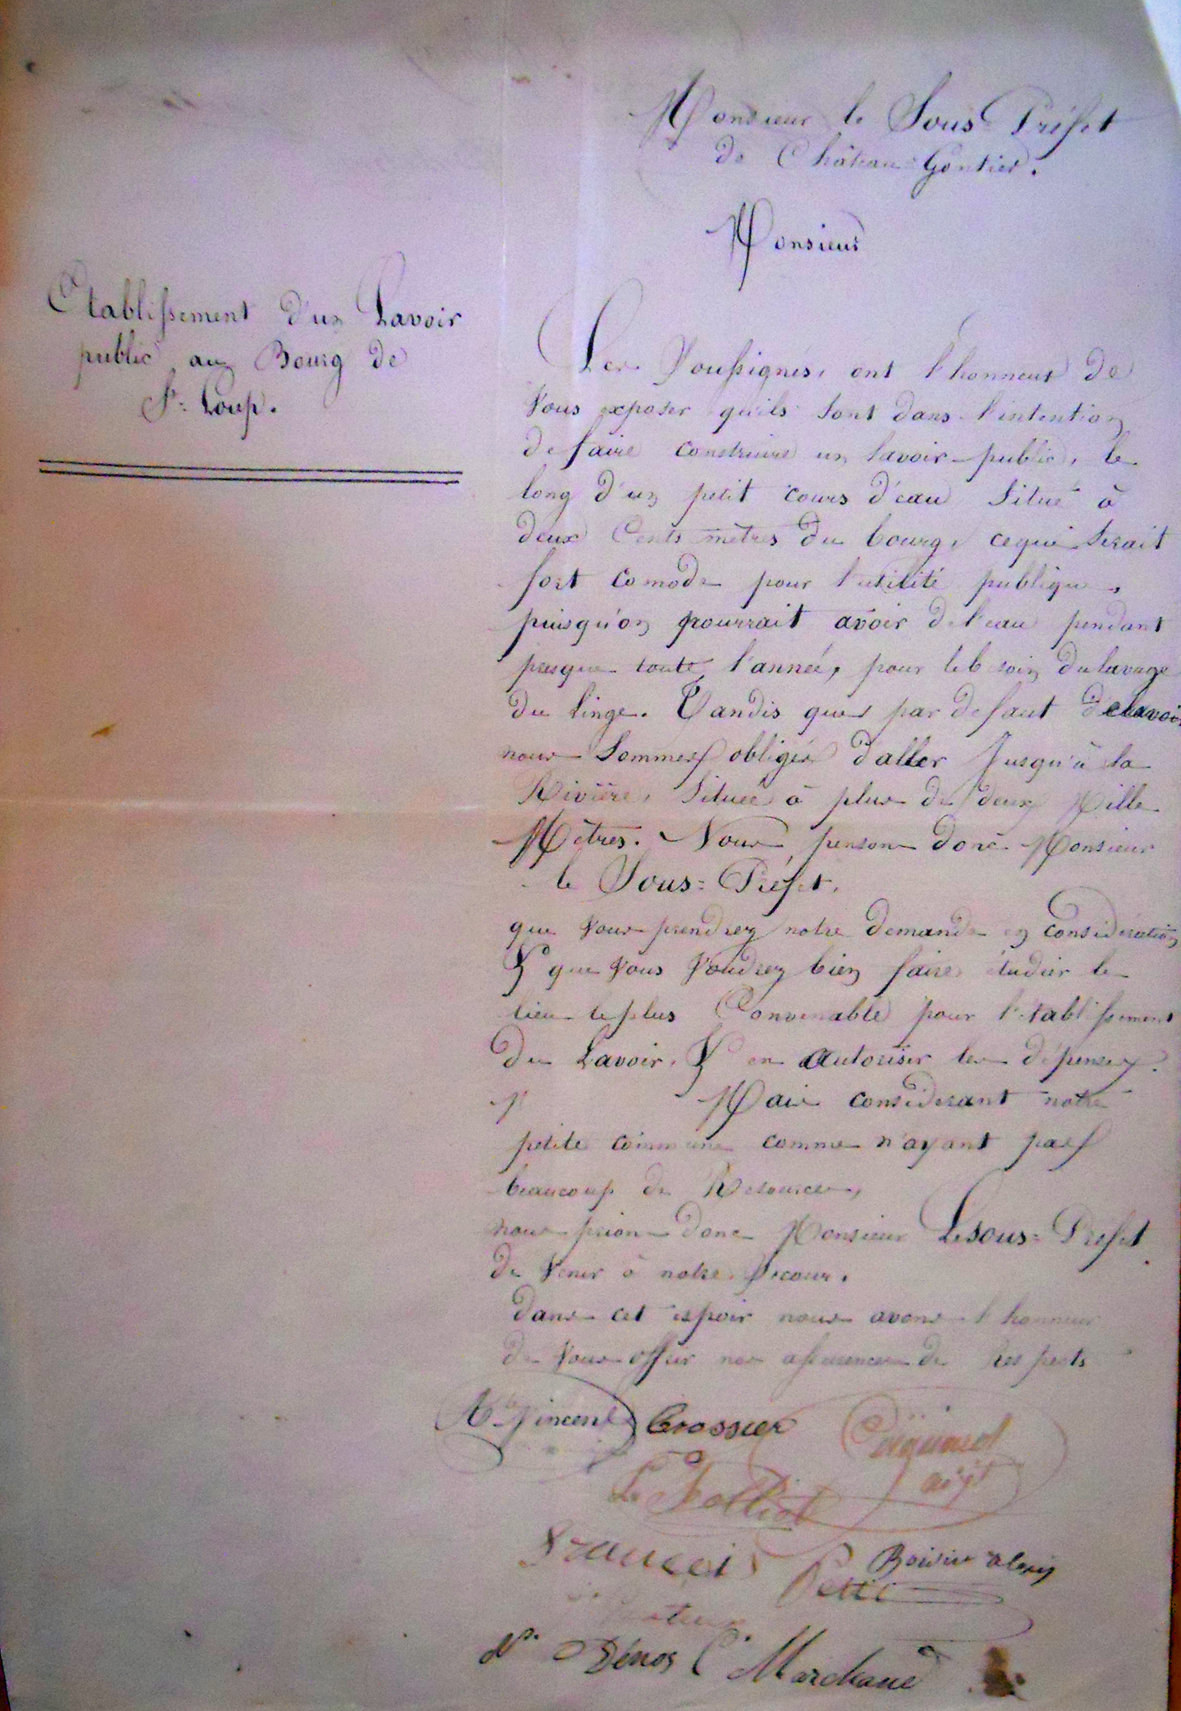 Monsieur le Sous-Préfet
de Château-Gontier.
Monsieur
Etablissement d'un Lavoir
public au Bourg de
St. Loup.
Les Soussignés, ont l'honneur de
Vous exposer qu'ils sont dans l'intention
de faire construire un lavoir public, le
long d'un petit cours d'eau situé à
deux Cents mètres du bourg, cequi serait
fort comode pour l'utilité publique,
puisqu'on pourrait avoir de l'eau pendant
presque toute l'année, pour le besoin du lavage
du linge. Tandis que par defaut de lavoir
nous sommes obligés d'aller Jusqu'à la
Rivière, située à plus de deux Mille
Mètres. Nous penson donc Monsieur
le Sous=Préfet.
que vous prendrez notre demande en Considération
& que Vous Voudrez bien faire étudier le
lieu le plus Convenable pour l'établissement
du Lavoir, & en autoriser les dépenses.
Maire considerant notre
petite commune comme n'ayant pas
beaucoup de Resources,
nous prions donc Monsieur Lesous=Préfet
de Venir à notre Secour.
dans cet espoir nous avons l'honneur
de Vous offrir nos assurences de Respects
Vincent Crossier
adjt
François Petit Boivin alexis
Marchand